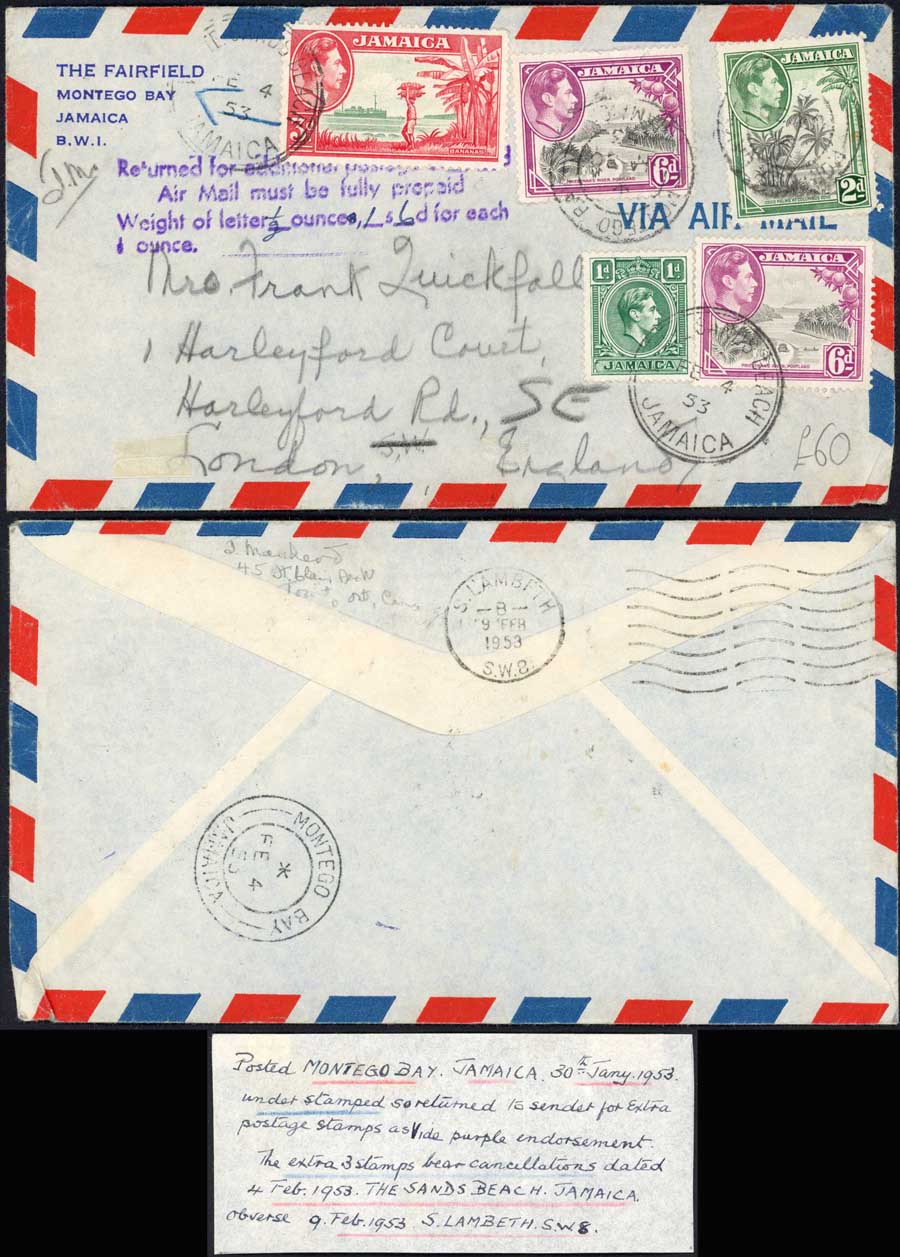 THE FAIRFIELD
MONTEGO BAY
JAMAICA
B.W.I.
FE 4
53
JAMAICA
JAMAICA
BANANAS
JAMAICA
6d
JAMAICA
2d
Returned for additional postage
Air Mail must be fully prepaid
Weight of letter ½ ounces, 1 s 6 d for each
½ ounce.
VIA AIR MAIL
1d 1d
JAMAICA
JAMAICA
6d
Mrs. Frank Quickfall
1 Harleyford Court,
Harleyford Rd., SE
S.W.
London, England
BEACH
FE 4
53
JAMAICA
£60
45 St. Clair
Ont,
S. LAMBETH
– 8 –
9 FEB
1953
S.W.8.
MONTEGO BAY
JAMAICA
*
FE 4
53
Posted MONTEGO BAY. JAMAICA. 30th Jany. 1953.
under stamped so returned to sender for Extra
postage stamps as Vide purple endorsement.
The extra 3 stamps bear cancellations dated
4 Feb. 1953. THE SANDS BEACH. JAMAICA.
obverse 9. Feb. 1953 S. LAMBETH. S.W 8.